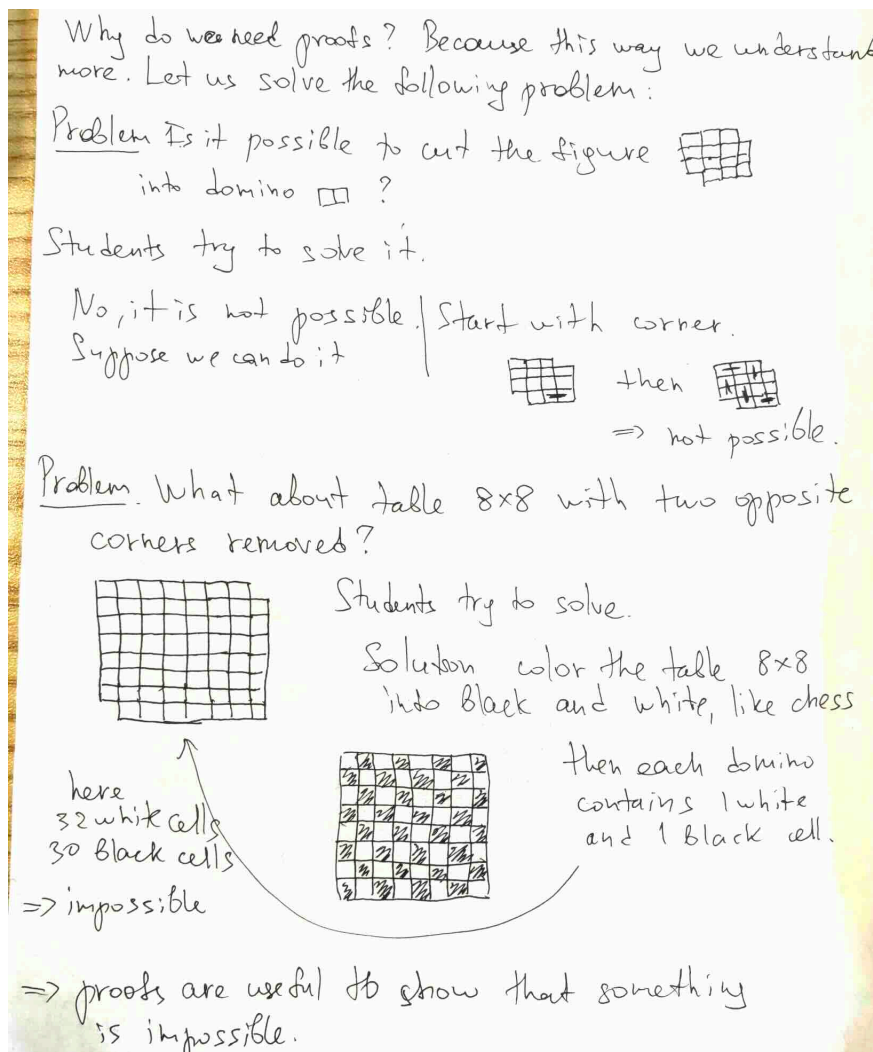 Why do we need proofs? Because this way we understand
more. Let us solve the following problem:
Problem Is it possible to cut the figure
into domino ?
Students try to solve it.
No, it is not possible.
Suppose we can do it
Start with corner.
then
=> not possible.
Problem. What about table 8×8 with two opposite
corners removed?
Students try to solve.
Solution color the table 8×8
into Black and white, like chess
then each domino
contains 1 white
and 1 Black cell.
here
32 white cells
30 Black cells
=> impossible
=> proofs are useful to show that something
is impossible.